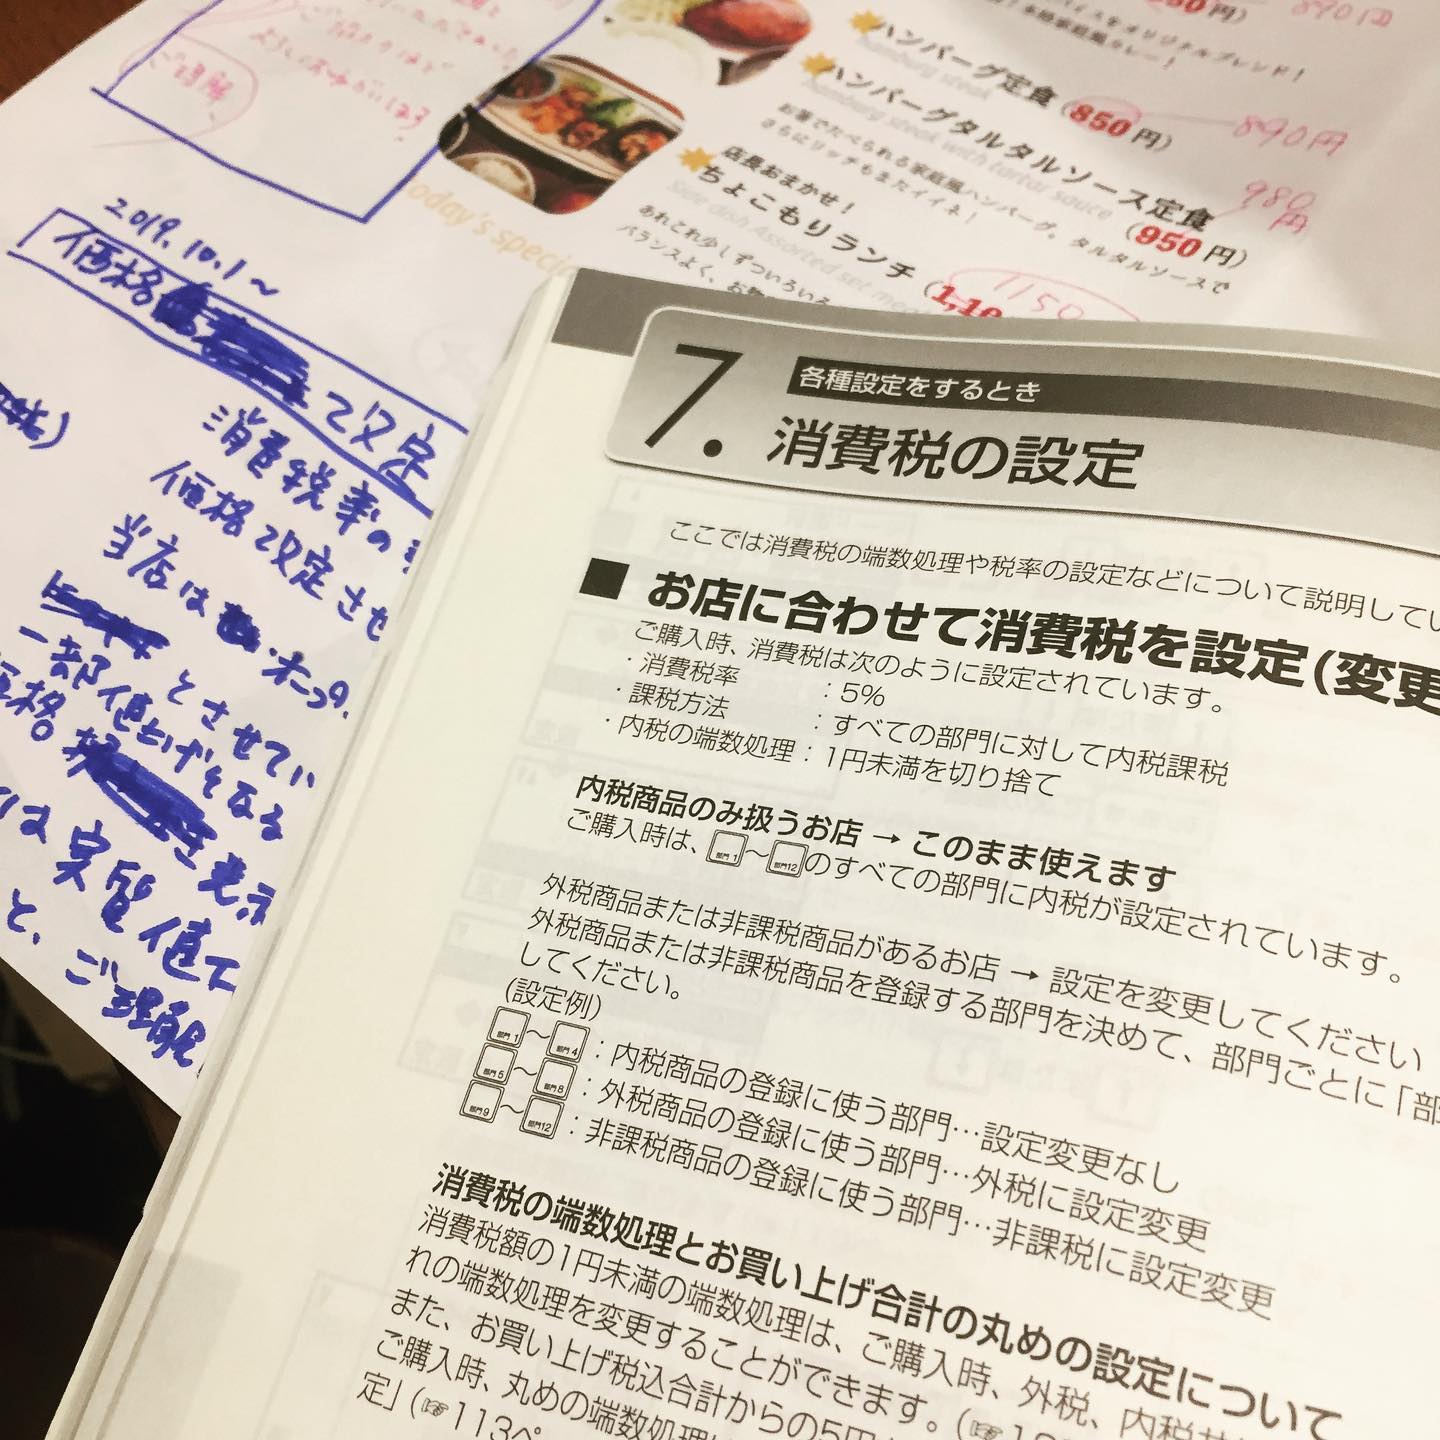 850円)
890円
ハンバーグ定食(850円)
hamburg steak
890円
ハンバーグタルタルソース定食
hamburg steak with tartar sauce
(950円)
980
円
お箸でたべられる家庭風ハンバーグ。タルタルソースで
さらにリッチもまたイイネ!
店長おまかせ!
ちょこもりランチ
1150
あれこれ少しずついろいろ
バランスよく、お
today's special
よろしくお願いします
ご理解
2019.10.1〜
価格 改定
消費税率の
価格改定させ
当店は
とさせてい
一部値上げをする
価格 表示
は実質値下
と、ご理解
7.
各種設定をするとき
消費税の設定
ここでは消費税の端数処理や税率の設定などについて説明してい
■ お店に合わせて消費税を設定(変更
ご購入時、消費税は次のように設定されています。
・消費税率 :5%
・課税方法 :すべての部門に対して内税課税
・内税の端数処理:1円未満を切り捨て
内税商品のみ扱うお店 → このまま使えます
ご購入時は、部門1〜部門12のすべての部門に内税が設定されています。
外税商品または非課税商品があるお店 → 設定を変更してください
外税商品または非課税商品を登録する部門を決めて、部門ごとに「部
してください。
(設定例)
部門1〜部門4:内税商品の登録に使う部門…設定変更なし
部門5〜部門8:外税商品の登録に使う部門…外税に設定変更
部門9〜部門12:非課税商品の登録に使う部門…非課税に設定変更
消費税の端数処理とお買い上げ合計の丸めの設定について
消費税額の1円未満の端数処理は、ご購入時、外税、内税
れの端数処理を変更することができます。(☞
また、お買い上げ税込合計からの5円
ご購入時、丸めの端数処理
定」(☞113ペ